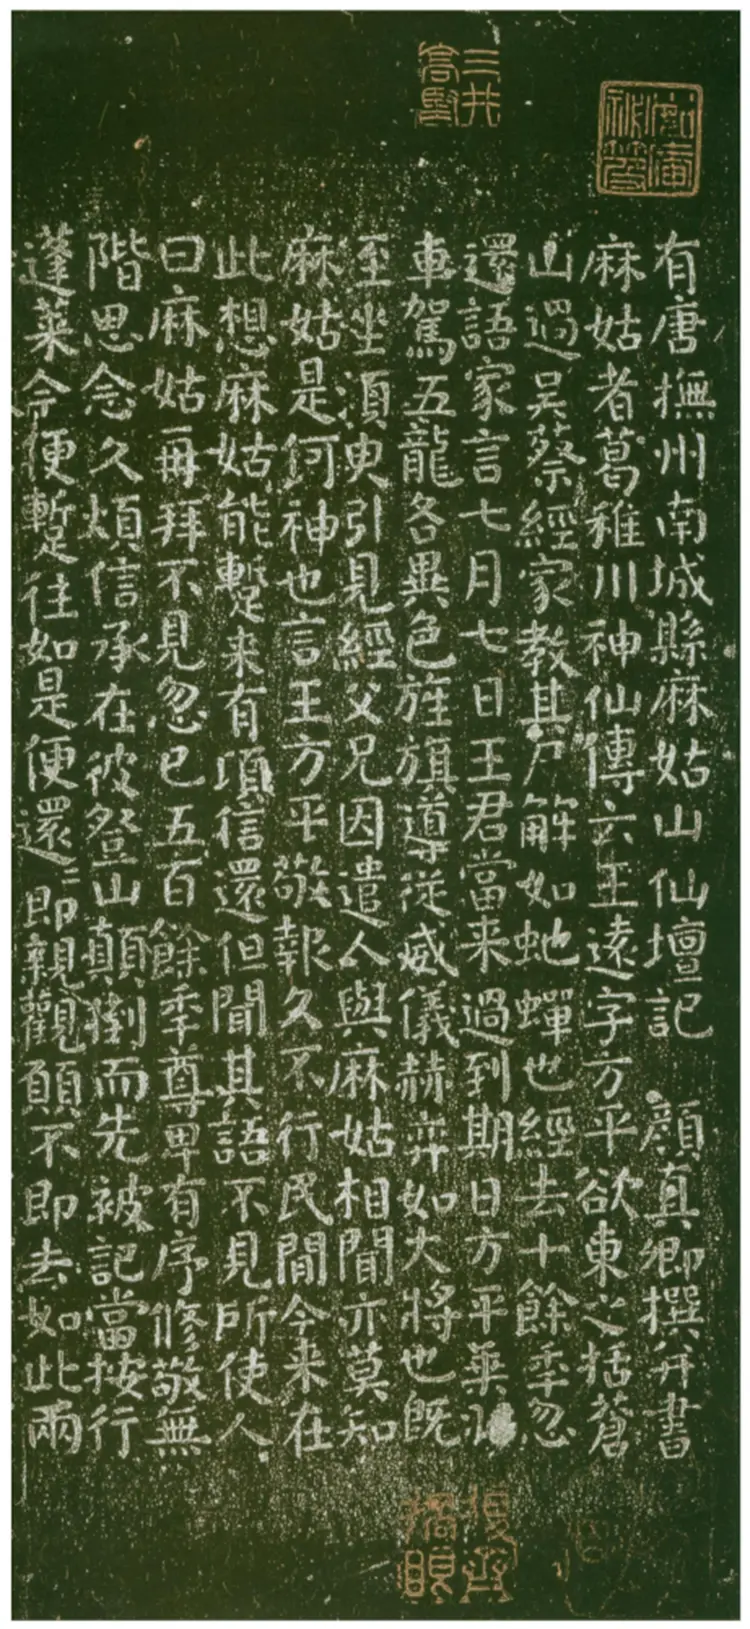 有唐撫州南城縣麻姑山仙壇記 顏真卿撰并書
麻姑者葛稚川神仙傳云王遠字方平欲東之括蒼
山過吳蔡經家教其尸解如虵蟬也經去十餘季忽
還語家言七月七日王君當来過到期日方平乘羽
車駕五龍各異色旌旗導從威儀赫弈如大將也旣
至坐湏臾引見經父兄因遣人與麻姑相聞亦莫知
麻姑是何神也言王方平敬報久不行民間今来在
此想麻姑能蹔来有頃信還但聞其語不見所使人
曰麻姑再拜不見忽已五百餘季尊卑有序修敬無
階思念久煩信承在彼登山顛倒而先被記當按行
蓬萊今便蹔往如是便還還即親觀願不即去如此兩
三井高堅